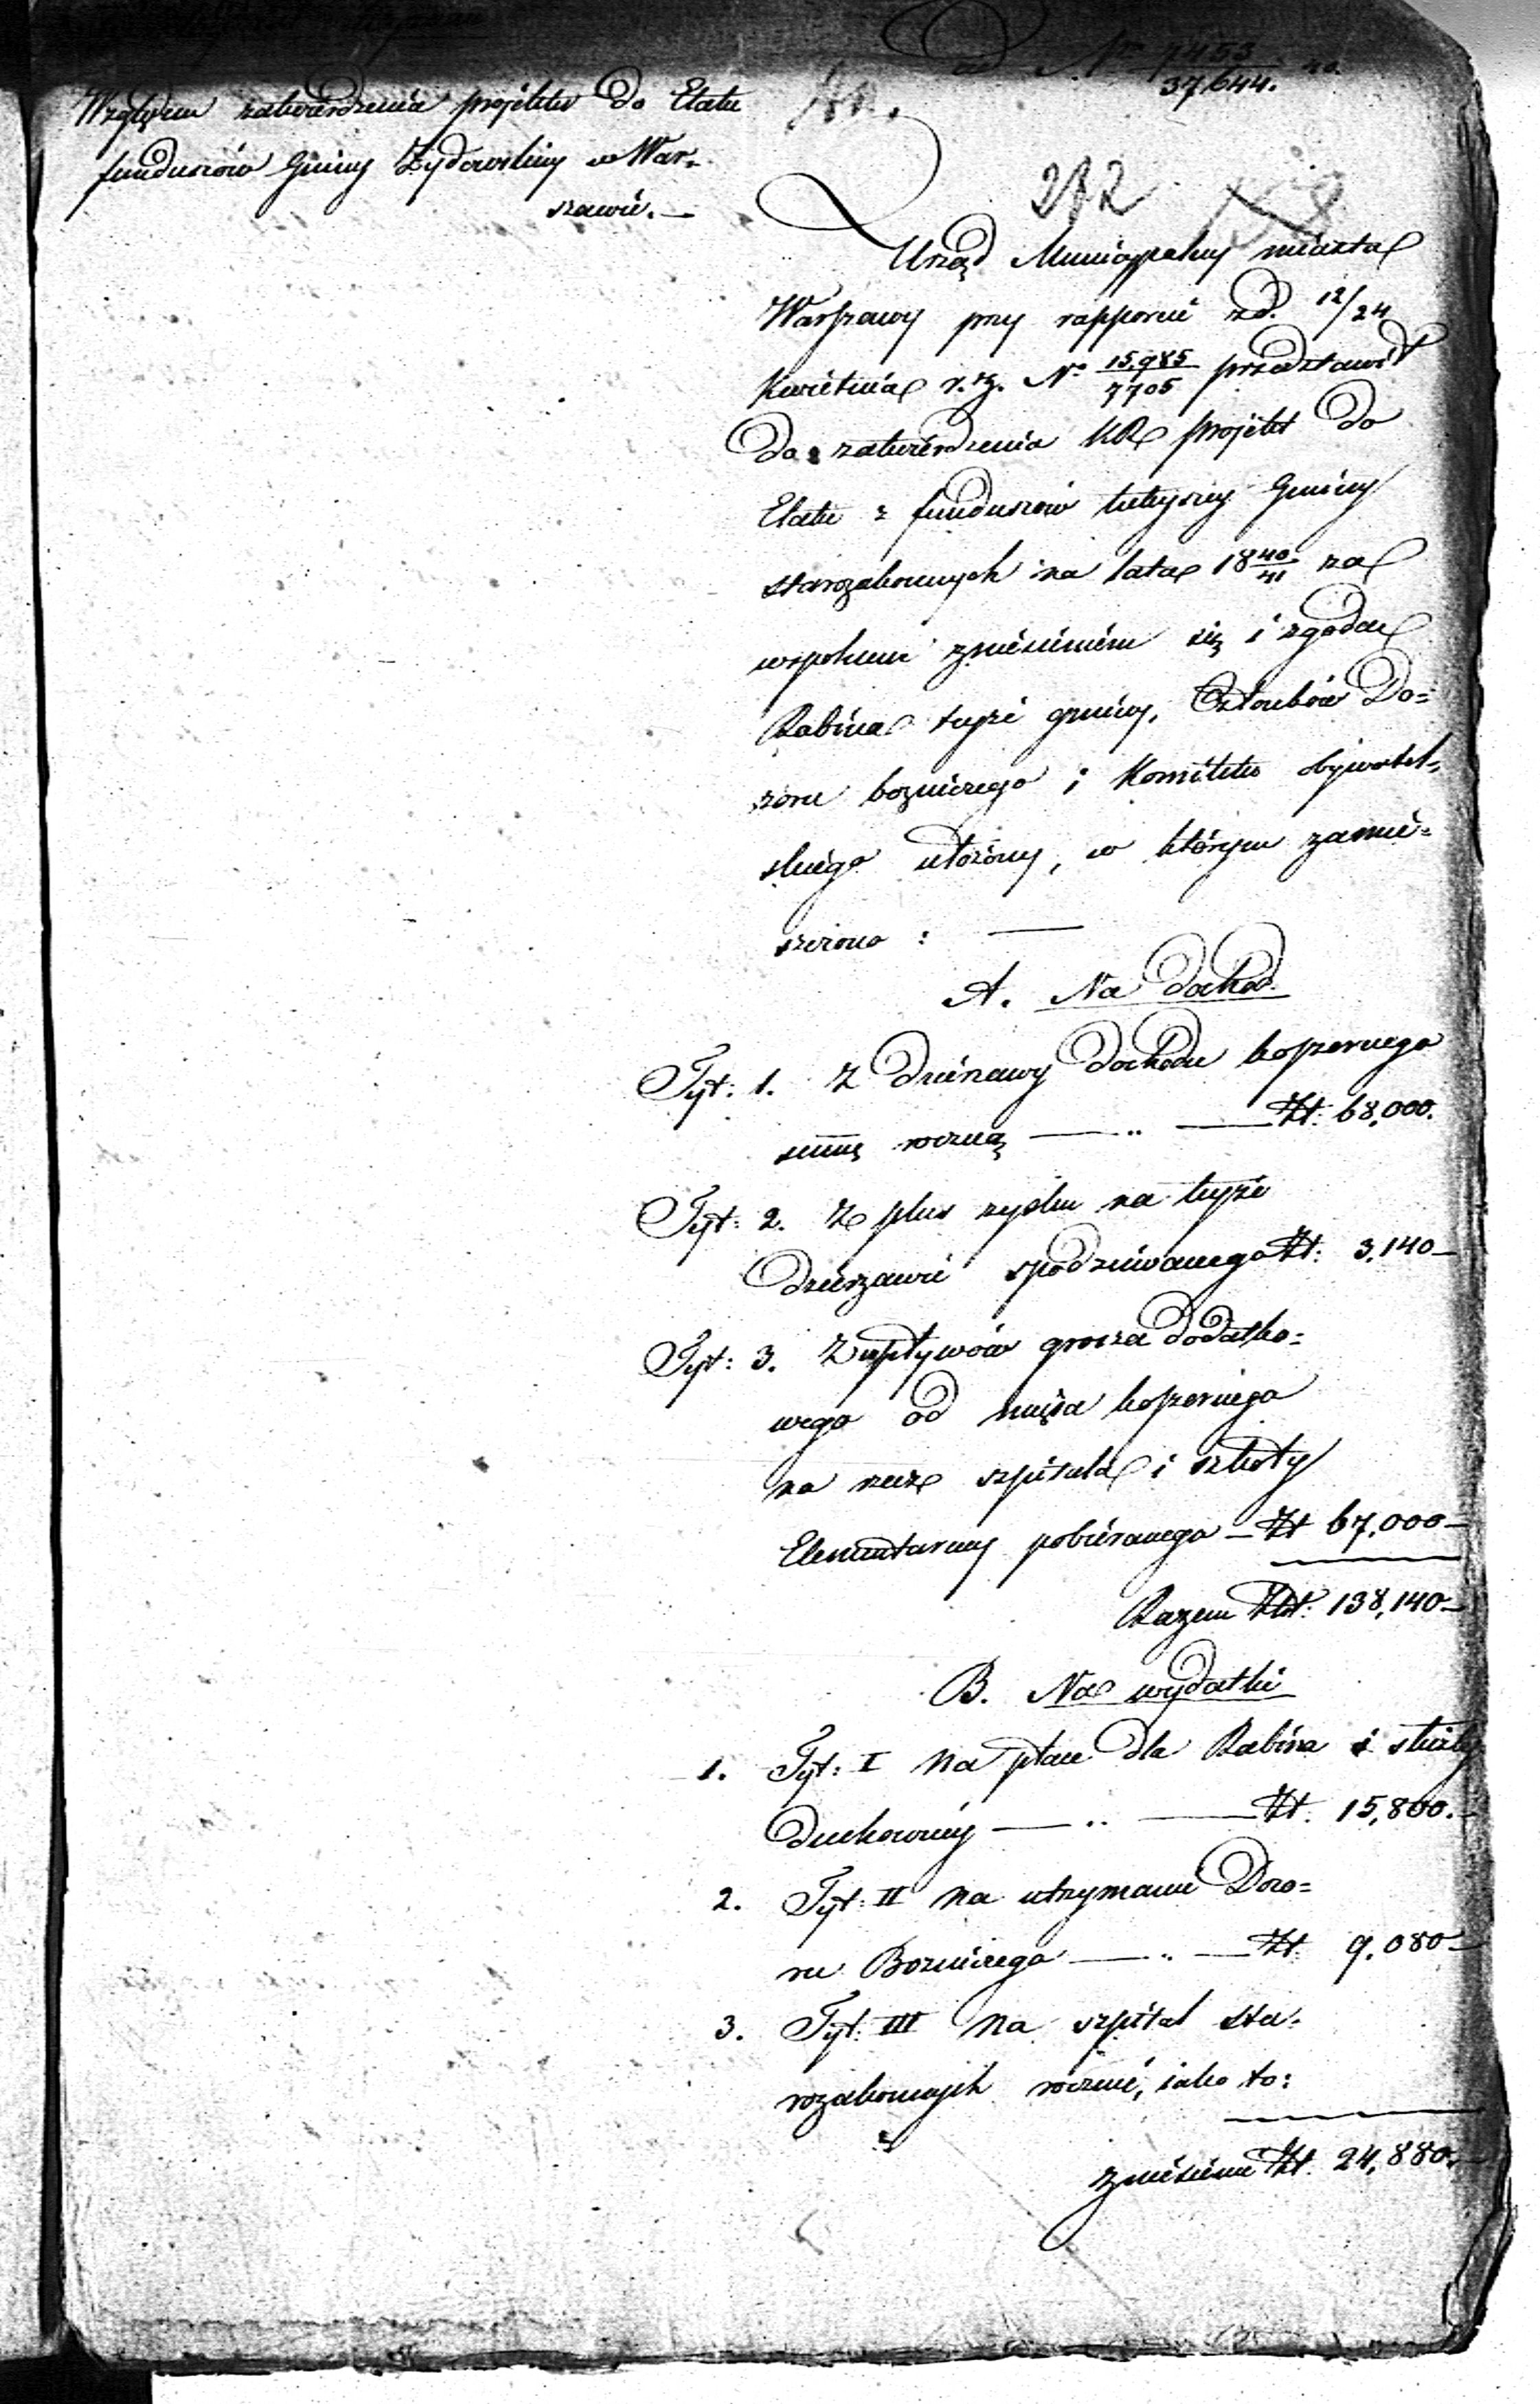 N. 7453
37,644.
Względem zatwierdzenia projektu do Etatu
funduszów Gminy Żydowskiey w War-
szawie. —
282
Urząd Municypalny miasta
Warszawy przy rapporcie z d. 12/24
Kwietnia r. b. No 15,985/7705 przedstawił
do zatwierdzenia KR projekt do
Etatu z funduszów tuteyszey Gminy
starozakonnych na lata 18 40/41 za
wspólnem zniesieniem się i zgodą
Rabina teyże gminy, Członków Do=
zoru bożniczego i Komitetu obywatel-
skiego ułożony, w którym zamie=
szczono : —
A. Na dochód.
Tyt: 1. Z dzierżawy dochodu koszernego
summę roczną — „ — Zł: 68,000.
Tyt: 2. Z plus zysku na teyże
dzierżawie spodziewanego Zł: 3,140 —
Tyt: 3. Z wpływów grosza dodatko=
wego od mięsa koszernego
na rzecz szpitala i szkoły
Elementarney pobieranego — Zł 67,000 —
Razem Złt: 138,140 —
B. Na wydatki
1. Tyt: I Na płace dla Rabina i służby
duchowney — „ — Zł. 15,800. —
2. Tyt: II Na utrzymanie Dozo=
ru Bożniczego — „ — Zł: 9,080 —
3. Tyt: III Na szpital sta-
rozakonnych rocznie, iako to:
zniesienie Zł. 24,880. —